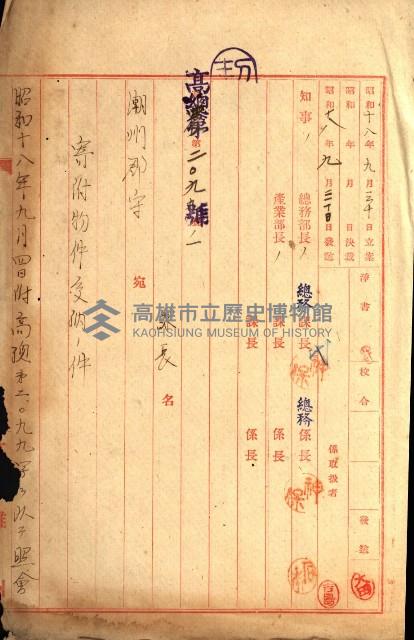 昭和十八年九月二十日立案
昭和 年 月 日決裁
昭和十八年九月二十日發送
淨書
校合
發送
知事
總務部長
產業部長
總務課長
課長
課長
總務係長
係長
係長
係取扱者
高總第二〇九九號ノ一
潮州郡守 宛
課長名
寄附物件受納ノ件
昭和十八年九月四日附高總第二〇九九字ヲ以テ照會
高雄市立歷史博物館
KAOHSIUNG MUSEUM OF HISTORY